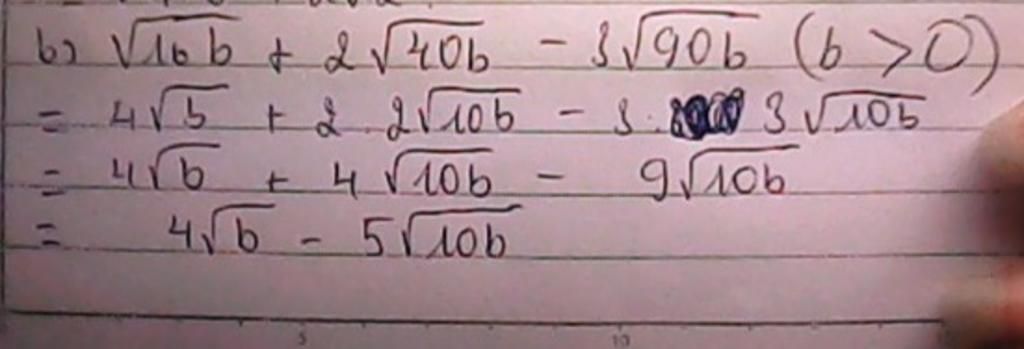 b) √16b + 2√40b - 3√90b (b > 0)
= 4√b + 2.2√10b - 3.3√10b
= 4√b + 4√10b - 9√10b
= 4√b - 5√10b
5 10